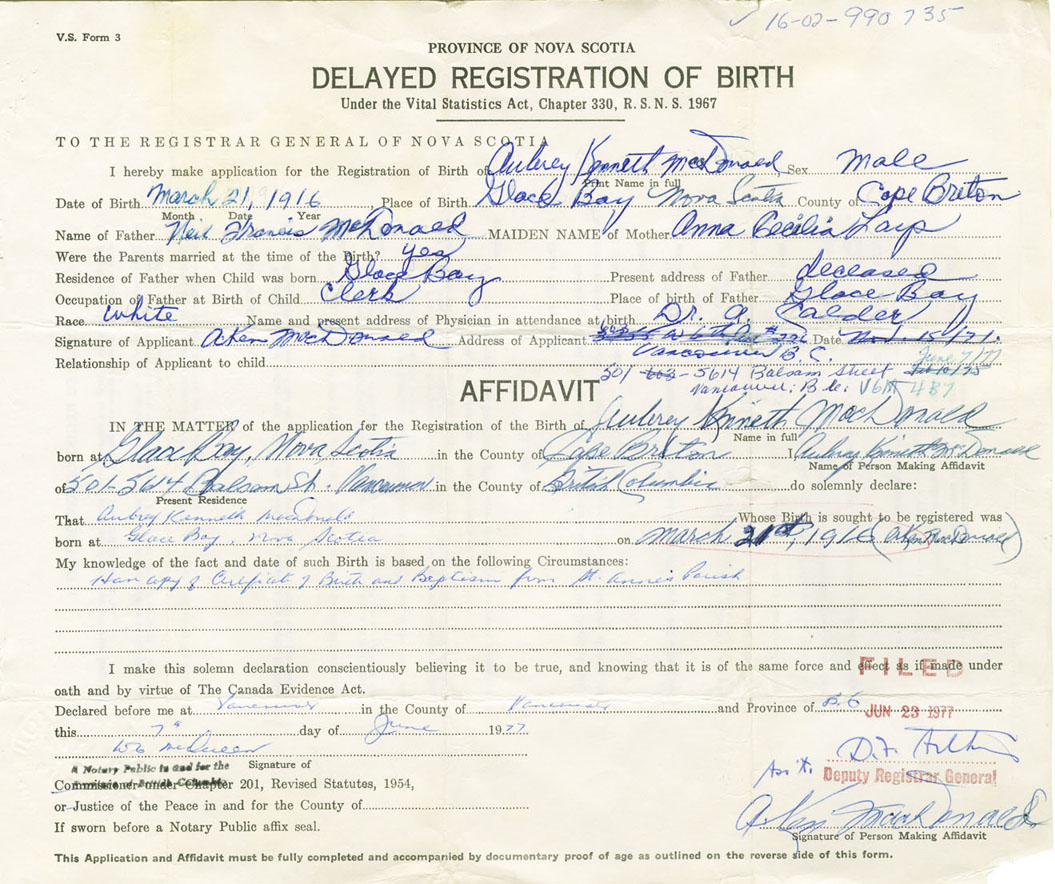 16-02-990735
V.S. Form 3
PROVINCE OF NOVA SCOTIA
DELAYED REGISTRATION OF BIRTH
Under the Vital Statistics Act, Chapter 330, R.S.N.S. 1967
TO THE REGISTRAR GENERAL OF NOVA SCOTIA
I hereby make application for the Registration of Birth of Aubrey Kenneth MacDonald Sex Male
Print Name in full
Date of Birth March 21, 1916 Place of Birth Glace Bay Nova Scotia County of Cape Breton
Month Date Year
Name of Father Neil Francis McDonald MAIDEN NAME of Mother Anna Cecilia
Were the Parents married at the time of the Birth? yes
Residence of Father when Child was born Glace Bay Present address of Father deceased
Occupation of Father at Birth of Child Clerk Place of birth of Father Glace Bay
Race white Name and present address of Physician in attendance at birth Dr. A. Calder
Signature of Applicant A Ken MacDonald Address of Applicant Date Nov. 15/71.
Vancouver B.C. June 7/77
Relationship of Applicant to child 301 - 5614 Balsam Street
Vancouver, B.C. V6M 4B7
AFFIDAVIT
IN THE MATTER of the application for the Registration of the Birth of Aubrey Kenneth MacDonald
Name in full
born at Glace Bay, Nova Scotia in the County of Cape Breton I Aubrey Kenneth McDonald
Name of Person Making Affidavit
of 501-5614 Balsam St. Vancouver in the County of British Columbia do solemnly declare:
Present Residence
That Aubrey Kenneth MacDonald Whose Birth is sought to be registered was
born at Glace Bay, Nova Scotia on March 21st, 1916 (A Ken MacDonald)
My knowledge of the fact and date of such Birth is based on the following Circumstances:
copy of Certificate of Birth and Baptism from St. Anne's Parish
I make this solemn declaration conscientiously believing it to be true, and knowing that it is of the same force and effect as if made under
FILED
oath and by virtue of The Canada Evidence Act.
Declared before me at Vancouver in the County of Vancouver and Province of B.C
JUN 23 1977
this 7th day of June 1977
McQueen
Signature of
A Notary Public in and for the
Commissioner under Chapter 201, Revised Statutes, 1954,
Ass't. Deputy Registrar General
or Justice of the Peace in and for the County of
A Ken MacDonald
If sworn before a Notary Public affix seal.
Signature of Person Making Affidavit
This Application and Affidavit must be fully completed and accompanied by documentary proof of age as outlined on the reverse side of this form.